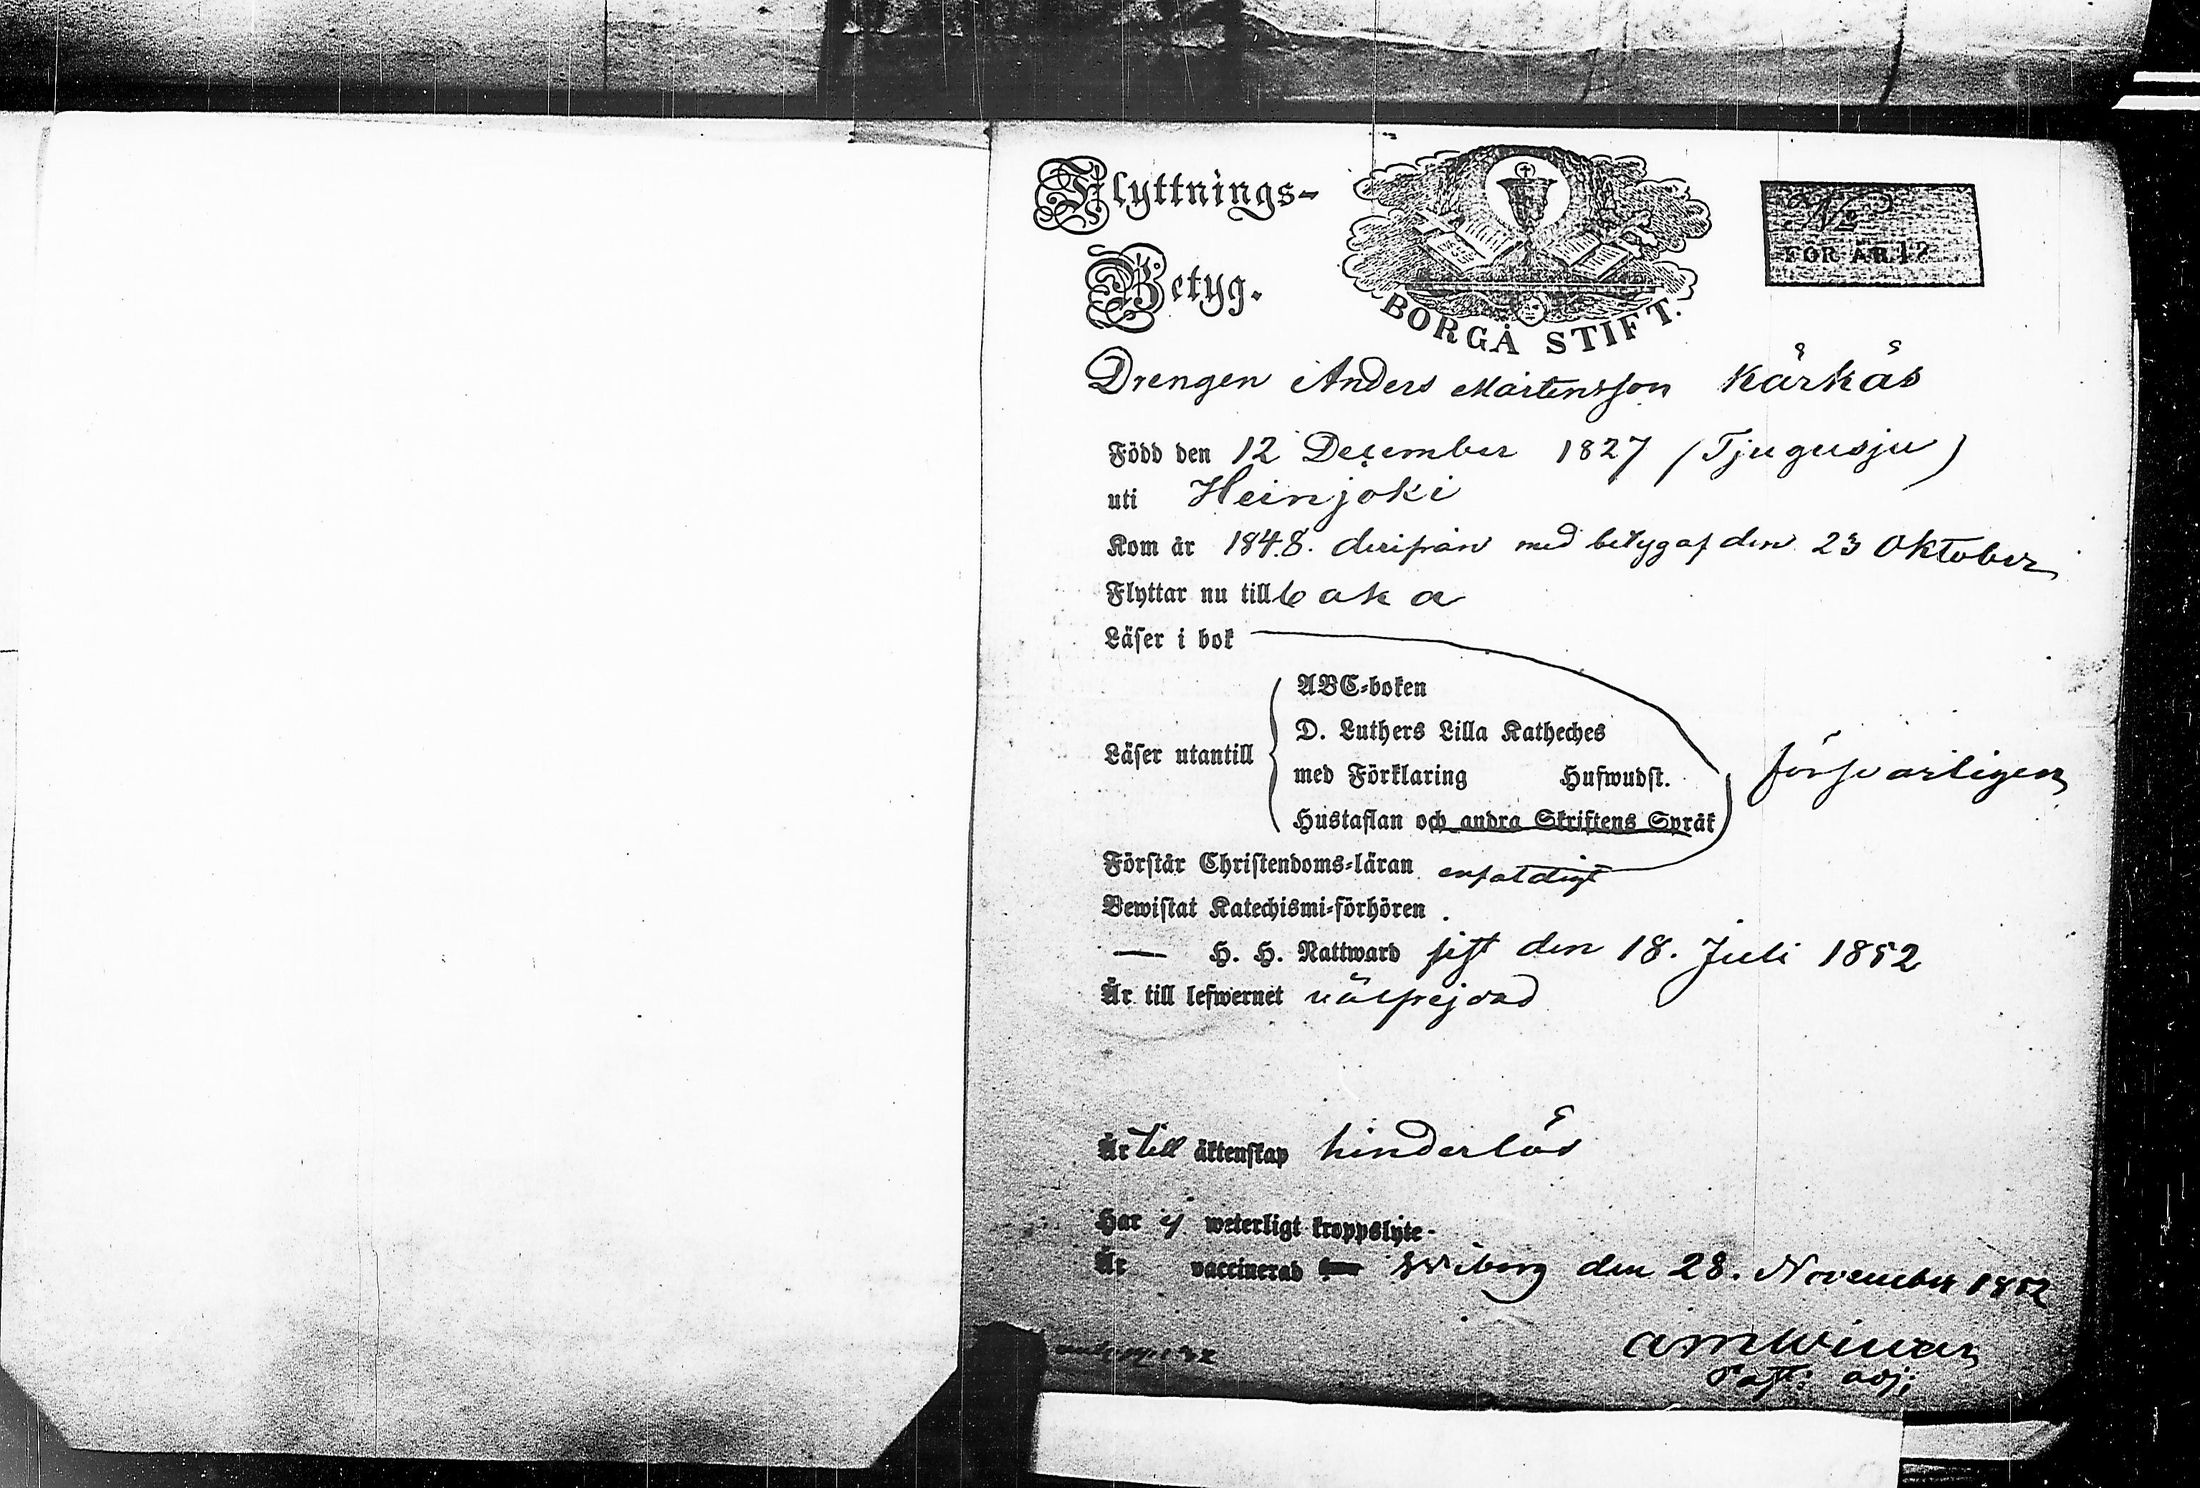 Flyttnings-
Betyg.
BORGÅ STIFT.
No
FÖR ÅR 18
Drengen Anders Mårtensson Kärkäs
Född den 12 December 1827 (Tjugusju)
uti Heinjoki
Kom år 1848. derifrån med betyg af den 23 Oktober
Flyttar nu till
Läser i bok
ABC-boken
D. Luthers Lilla Katheches
Läser utantill med Förklaring Hufwudst. försvarligen
Hustaflan och andra Skriftens Språk
Förstår Christendoms-läran enfaldigt
Bewistat Katechismi-förhören
— H. H. Nattward sist den 18. Juli 1852
Är till lefwernet välfrejdad
Är till äktenskap hinderlös
Har ej weterligt kroppslyte
Är vaccinerad Wiborg den 28. November 1852
Past: adj: